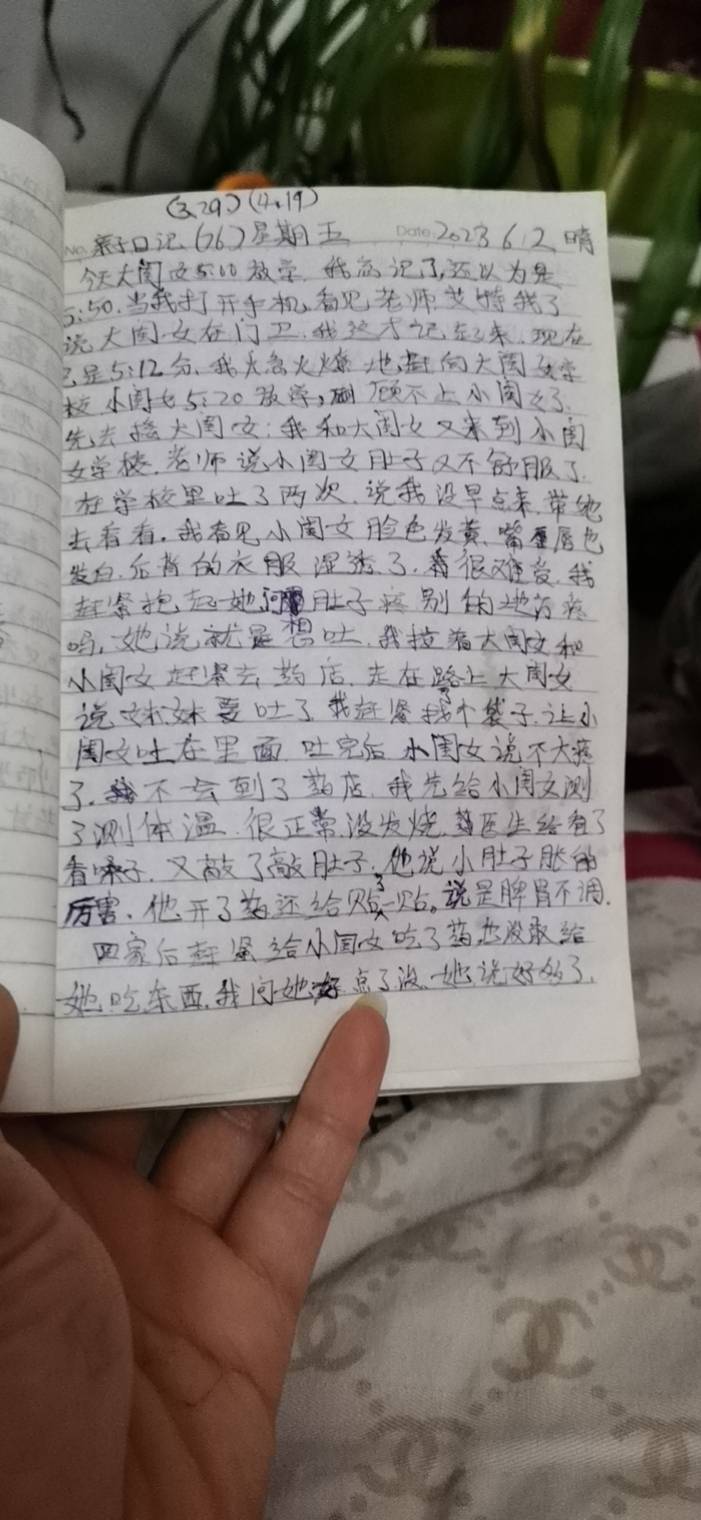 (3.29)(4.19)
No. 亲子日记(76)星期五 Date. 2023.6.2 晴
今天大闺女5:10放学,我忘记了,还以为是
5:50.当我打开手机,看见老师艾特我了
说大闺女在门卫,我这才记起来,现在
已是5:12分,我火急火燎地赶向大闺女学
校,小闺女5:20放学,顾不上小闺女了,
先去接大闺女;我和大闺女又来到小闺
女学校,老师说小闺女肚子又不舒服了,
在学校里吐了两次,说我没早点来,带她
去看看。我看见小闺女脸色发黄、嘴唇也
发白,后背的衣服湿透了,很难受,我
赶紧抱起她问肚子疼,别的地方疼
吗,她说就是想吐,我拉着大闺女和
小闺女赶紧去药店,走在路上大闺女
说妹妹要吐了,我赶紧找个袋子,让小
闺女吐在里面,吐完后小闺女说不大疼
了,不一会到了药店,我先给小闺女测
了测体温,很正常,没发烧,医生给看了
看嗓子,又敲了敲肚子,他说小肚子胀的
厉害,他开了药还给贴了一贴,说是脾胃不调.
回家后赶紧给小闺女吃了药,也没敢给
她吃东西,我问她好点了没,她说好多了.